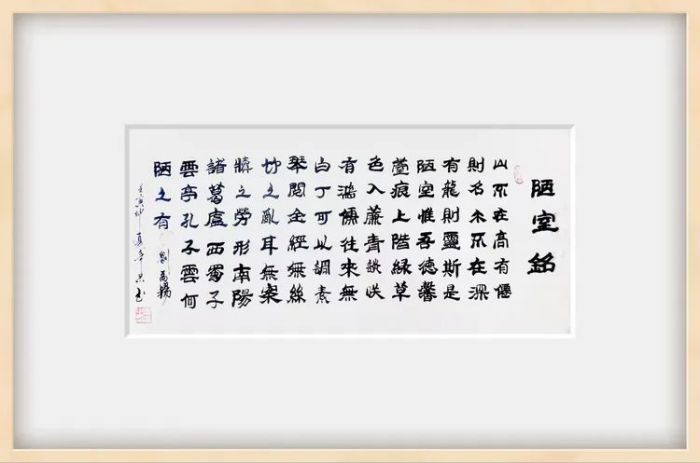 陋室銘
山不在高有僊
則名水不在深
有龍則靈斯是
陋室惟吾德馨
薹痕上階緑草
色入簾青談咲
有鴻儒往來無
白丁可以調素
琴閲金經無絲
竹之亂耳無案
牘之勞形南陽
諸葛廬西蜀子
雲亭孔子雲何
陋之有 劉禹錫
壬寅仲夏